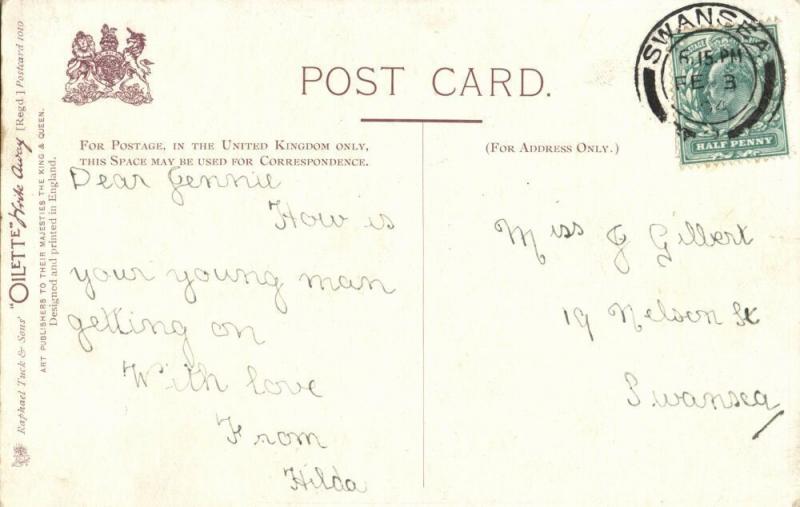 POST CARD.
FOR POSTAGE, IN THE UNITED KINGDOM ONLY,
THIS SPACE MAY BE USED FOR CORRESPONDENCE.
(FOR ADDRESS ONLY.)
Dear Jennie
How is
your young man
getting on
With love
From
Hilda
Miss J Gilbert
19 Nelson St
Swansea
SWANSEA
5.15.PM
FE 3
04
HALF PENNY
Raphael Tuck & Sons' "OILETTE" Wide Away [Regd.] Postcard 1010
ART PUBLISHERS TO THEIR MAJESTIES THE KING & QUEEN.
Designed and printed in England.